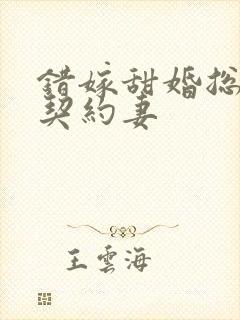 錯嫁甜婚総
契約妻
王雲海